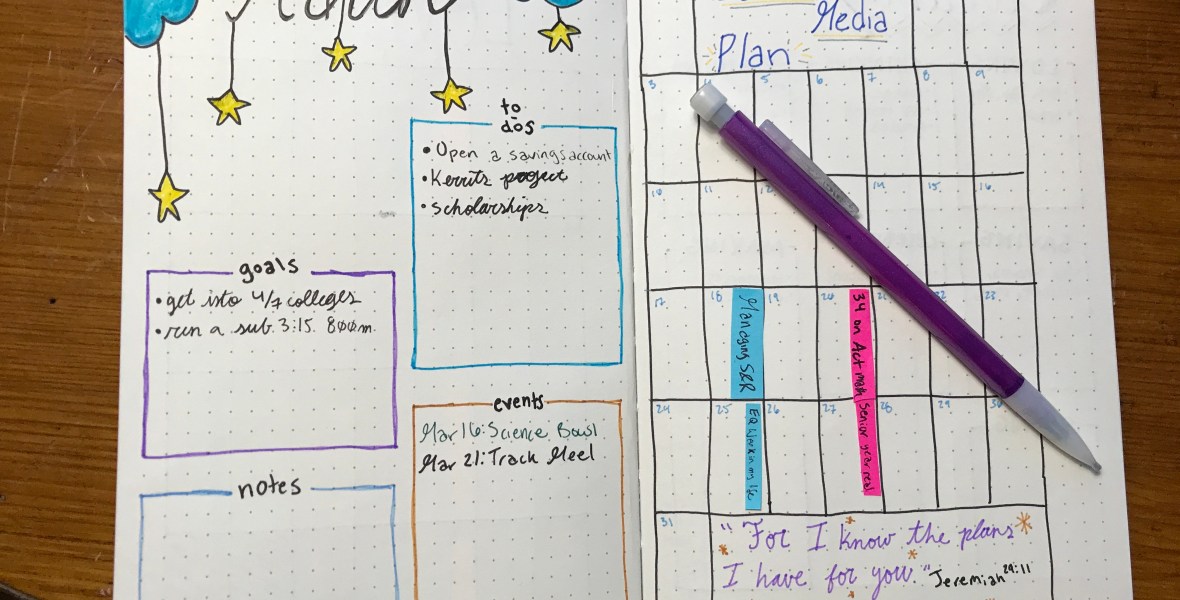 to
dos
• Open a savings account
• Kerrits project
• scholarships
goals
• get into 4/7 colleges
• run a sub 3:15 800m
events
Mar 16: Science Bowl
Mar 21: Track Meet
notes
Media
Plan
3 4 5 6 7 8 9
10 11 12 14 15 16
17 18 19 20 21 22 23
Managing S&R
34 on Act math
24 25 26 27 28 29 30
EQ Work in my life
Senior year real
31
"For I know the plans
I have for you." Jeremiah 29:11